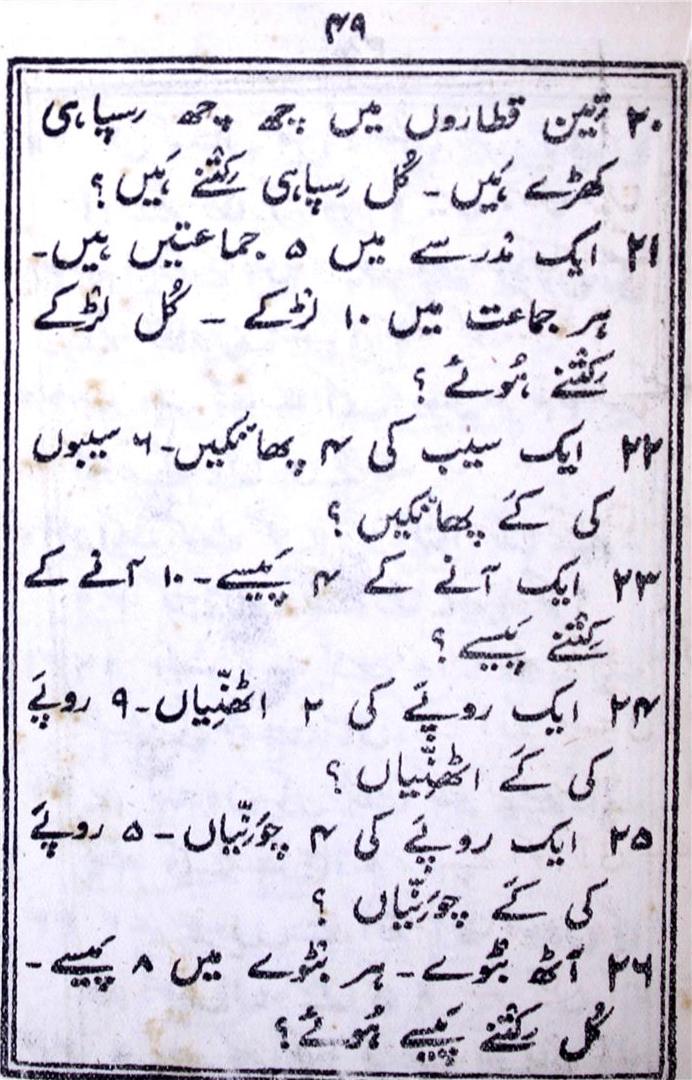 ۴۹
۲۰ تین قطاروں میں چھ چھ سِپاہی
کھڑے ہَیں ۔ کُل سِپاہی کِتْنے ہَیں ؟
۲۱ ایک مدرسے میں ۵ جماعتیں ہیں ۔
ہر جماعت میں ۱۰ لڑکے ۔ کُل لڑکے
کِتْنے ہُوئے ؟
۲۲ ایک سیب کی ۴ پھانکیں ۔ ۶ سیبوں
کی کَے پھانکیں ؟
۲۳ ایک آنے کے ۴ پَیسے ۔ ۱۰ آنے کے
کِتْنے پَیسے ؟
۲۴ ایک روپَے کی ۲ اٹھنِّیاں ۔ ۹ روپَے
کی کَے اٹھنِّیاں ؟
۲۵ ایک روپَے کی ۴ چوَنِّیاں ۔ ۵ روپَے
کی کَے چوَنِّیاں ؟
۲۶ آٹھ بٹْوے ۔ ہر بٹْوے میں ۸ پَیسے ۔
کُل کِتْنے پَیسے ہُوئے ؟